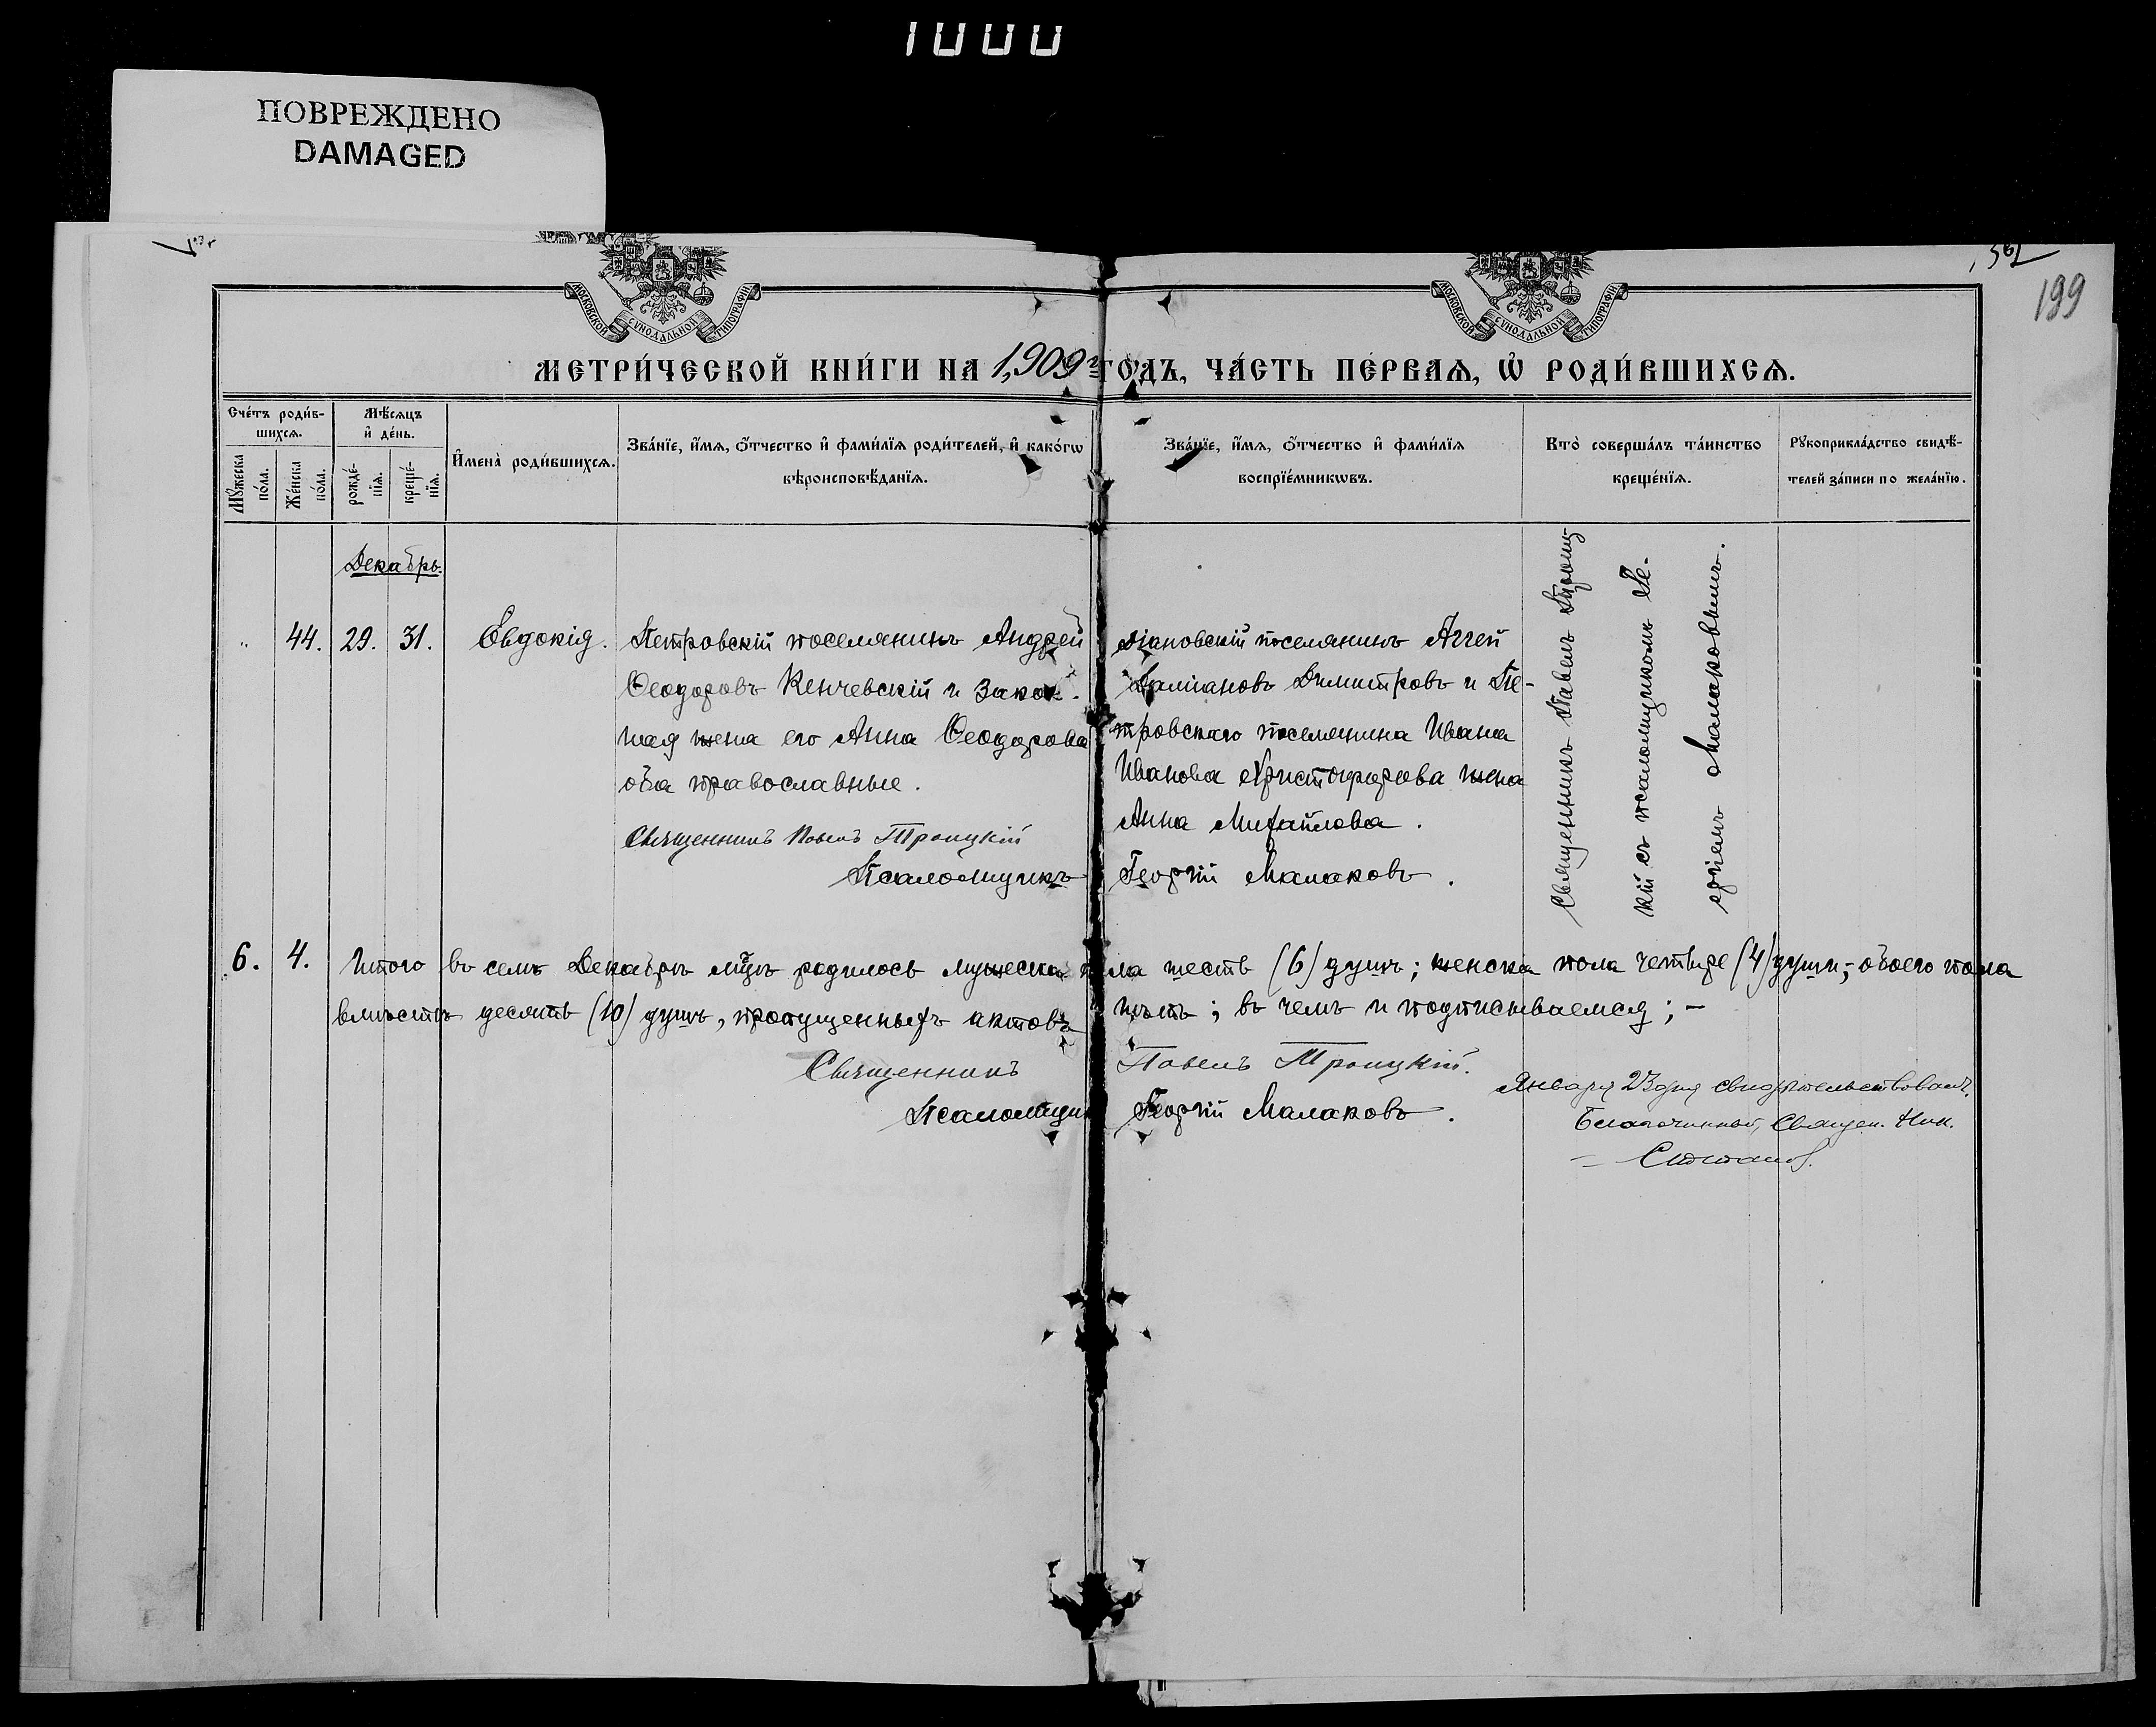 1000
ПОВРЕЖДЕНО
DAMAGED
199
МОСКОВСКОЙ СѴНОДАЛЬНОЙ ТИПОГРАФІИ
МОСКОВСКОЙ СѴНОДАЛЬНОЙ ТИПОГРАФІИ
МЕТРИ́ЧЕСКОЙ КНИ́ГИ НА 1,909 г ГО́ДЪ, ЧА́СТЬ ПЕ́РВАѦ, Ѡ҆ РОДИ́ВШИХСѦ.
Сче́тъ роди́в-
шихсѧ.
Мꙋ́жеска по́ла.
Же́нска по́ла.
Мѣ́сѧцъ
и҆ де́нь.
рожде́-
нїѧ.
креще́-
нїѧ.
И҆мена̀ роди́вшихсѧ.
Зва́нїе, и҆́мѧ, ѻ҆́тчество и҆ фами́лїѧ роди́телей, и҆ како́гѡ
вѣроисповѣ́данїѧ.
Зва́нїе, и҆́мѧ, ѻ҆́тчество и҆ фами́лїѧ
воспрїе́мникѡвъ.
Кто̀ соверша́лъ та́инство
креще́нїѧ.
Рꙋкоприкла́дство свидѣ́-
телей за́писи по жела́нїю.
Декабрь.
" 44. 29. 31. Евдокія.
Петровскій поселянинъ Андрей
Ѳеодоровъ Кенчевскій и закон.
ная жена его Анна Ѳеодорова
оба православные.
Священникъ Павелъ Троицкій
Псаломщикъ
поселянинъ Аггей
Даміановъ Димитровъ и Пе-
тровскаго поселянина Ивана
Иванова Христофорова жена
Анна Михайлова.
Георгій Малаковъ.
Священникъ Павелъ Троиц-
кій съ псаломщикомъ Ге-
оргіемъ Малаковымъ.
6. 4. Итого въ семъ Декабрѣ мцѣ родилось мужеска пола шесть (6) душъ; женска пола четыре (4) души; - обоего пола
вмѣстѣ десять (10) душъ, пропущенныхъ актовъ нѣтъ; въ чемъ и подписываемся; -
Священникъ Павелъ Троицкій.
Псаломщикъ Георгій Малаковъ.
Января 23 дня свидѣтельствовалъ.
Благочинный, Священ. Ник.